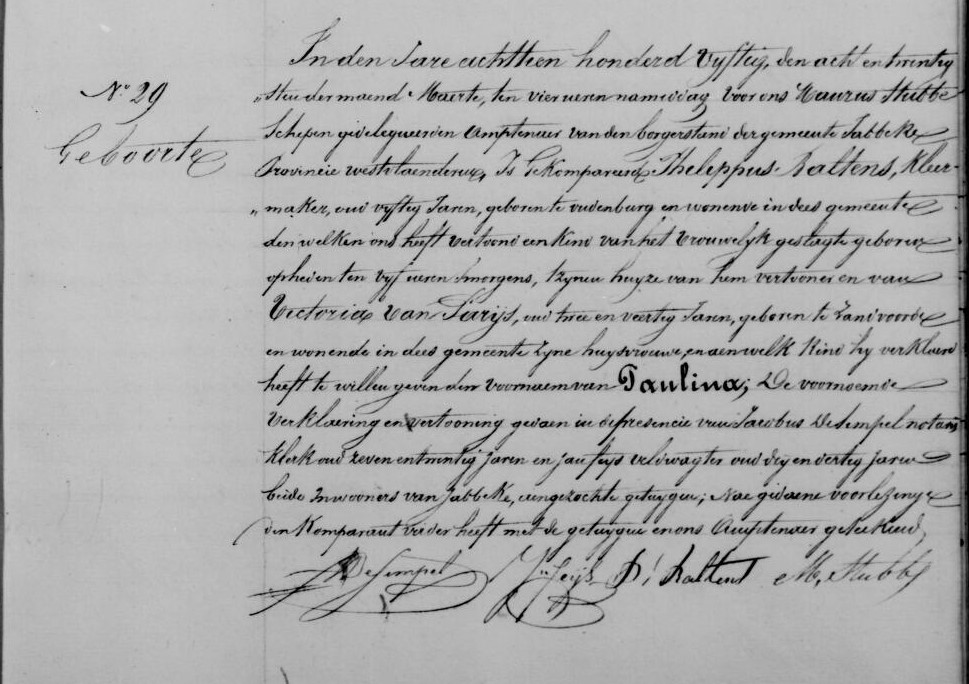 N° 29
Geboorte
In den Jare achttien honderd vyftig, den acht en twintig
sten der maend Maerte, ten vier uren namiddag voor ons Maurus Stubbe
Schepen gedelegueerden Amptenaer van den borgerstand der gemeente Jabbeke
Provincie westvlaenderen, Is Gekompareerd Philippus Baltens, kleer-
maker, oud vyftig Jaren, geboren te oudenburg en wonende in dees gemeente
den welken ons heeft vertoond een Kind van het vrouwelyk geslagte geboren
op heden ten vyf uren smorgens, t'zynen huyze van hem vertooner en van
Victoria Van Parys, oud twee en veertig Jaren, geboren te Zandvoorde
en wonende in dees gemeente Zyne huysvrouwe, en aen welk Kind hy verklaerd
heeft te willen geven den voornaem van Paulina; De voornoemde
verklaering en vertooning gedaen in de presencie van Jacobus Desempel notaris
klerk oud zeven en twintig jaren en jan feys veldwagter oud dry en dertig jaren
beide Inwooners van Jabbeke, aengezochte getuygen; Nae gedaene voorlezinge
den Komparant vader heeft met de getuygen en ons Amptenaer geteekend,
JDesempel J: Feijs P: Baltens M, Stubbe